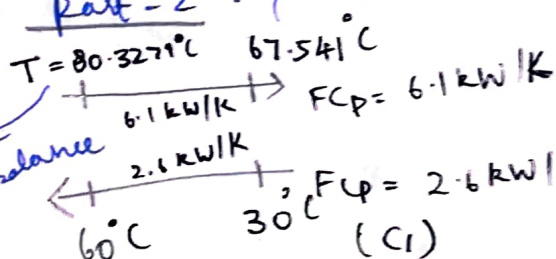 Part - 2
T = 80.3279°C 67.541°C
6.1 kW/K FCp = 6.1 kW/K
balance 2.6 kW/K
FCp = 2.6 kW/
60°C 30°C (C1)